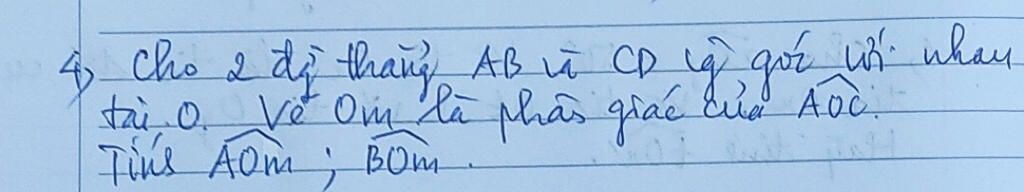 4) Cho 2 đg thẳng AB và CD vg góc với nhau
tại O. Vẽ Om là phân giác của AOC.
Tính AOm ; BOm.